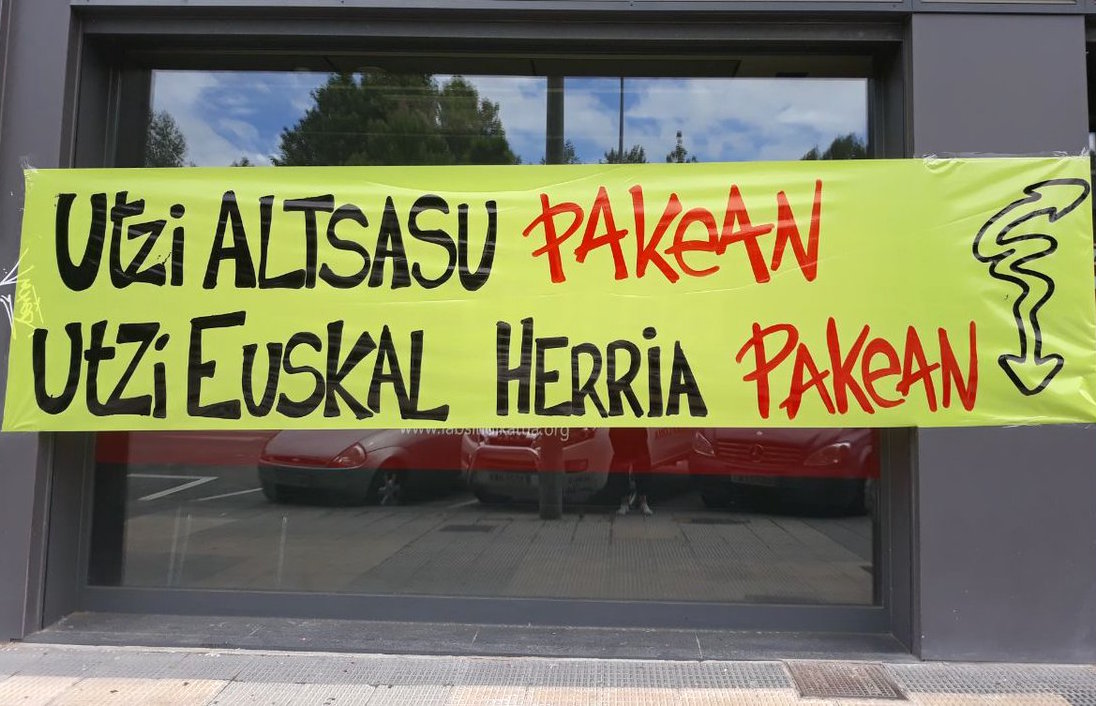 Utzi ALTSASU PAKeAN
UtZi EUSKAL HERRiA PAKeAN